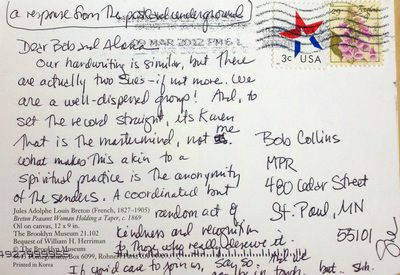 (a response from the postcard underground)
Dear Bob and Alana
22 MAR 2012 PM 6 L
3c USA
Our handwriting is similar, but there
are actually two Sues – if not more. We
are a well-dispersed group! And, to
set the record straight, its Karen
that is the mastermind, not me
what makes this akin to a
spiritual practice is the anonymity
of the senders. A coordinated but
random act of
kindness and recognition
to those who really deserve it.
If you'd care to join us, say so
be in touch. but.. shh.
Bob Collins
MPR
480 Cedar Street
St. Paul, MN
55101
Jules Adolphe Louis Breton (French, 1827–1905)
Breton Peasant Woman Holding a Taper, c. 1869
Oil on canvas, 12 x 9 in.
The Brooklyn Museum 21.102
Bequest of William H. Herriman
© The Brooklyn Museum
Box 6099, Rohnert
Printed in Korea